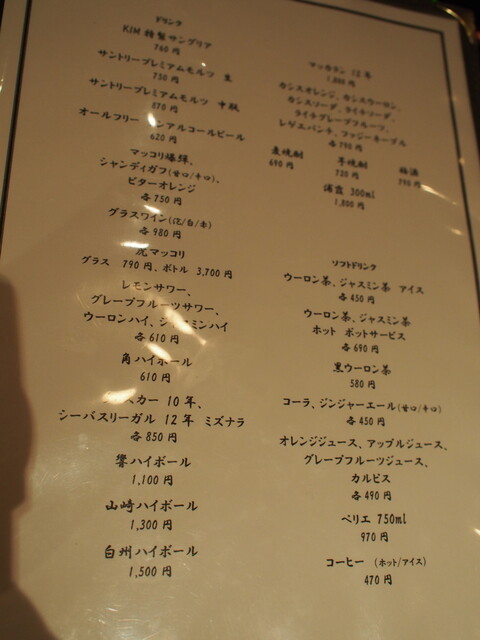 ドリンク
KJM 特製サングリア
760 円
サントリープレミアムモルツ 生
750 円
サントリープレミアムモルツ 中瓶
870 円
オールフリー ノンアルコールビール
620 円
マッコリ爆弾、
シャンディガフ(甘口/辛口)、
ビターオレンジ
各 750 円
グラスワイン(泡/白/赤)
各 980 円
虎マッコリ
グラス 790 円、ボトル 3,700 円
レモンサワー、
グレープフルーツサワー、
ウーロンハイ、ジャスミンハイ
各 610 円
角ハイボール
610 円
カー 10 年、
シーバスリーガル 12 年 ミズナラ
各 850 円
響ハイボール
1,100 円
山崎ハイボール
1,300 円
白州ハイボール
1,500 円
マッカラン 12 年
カシスオレンジ、カシスウーロン、
カシスソーダ、ライチソーダ、
ライチグレープフルーツ、
レゲエパンチ、ファジーネーブル
各 795 円
麦焼酎 芋焼酎 梅酒
690 円 720 円 790 円
浦霞 300ml
1,800 円
ソフトドリンク
ウーロン茶、ジャスミン茶 アイス
各 450 円
ウーロン茶、ジャスミン茶
ホット ポットサービス
各 690 円
黒ウーロン茶
580 円
コーラ、ジンジャーエール(甘口/辛口)
各 450 円
オレンジジュース、アップルジュース、
グレープフルーツジュース、
カルピス
各 490 円
ペリエ 750ml
970 円
コーヒー (ホット/アイス)
470 円